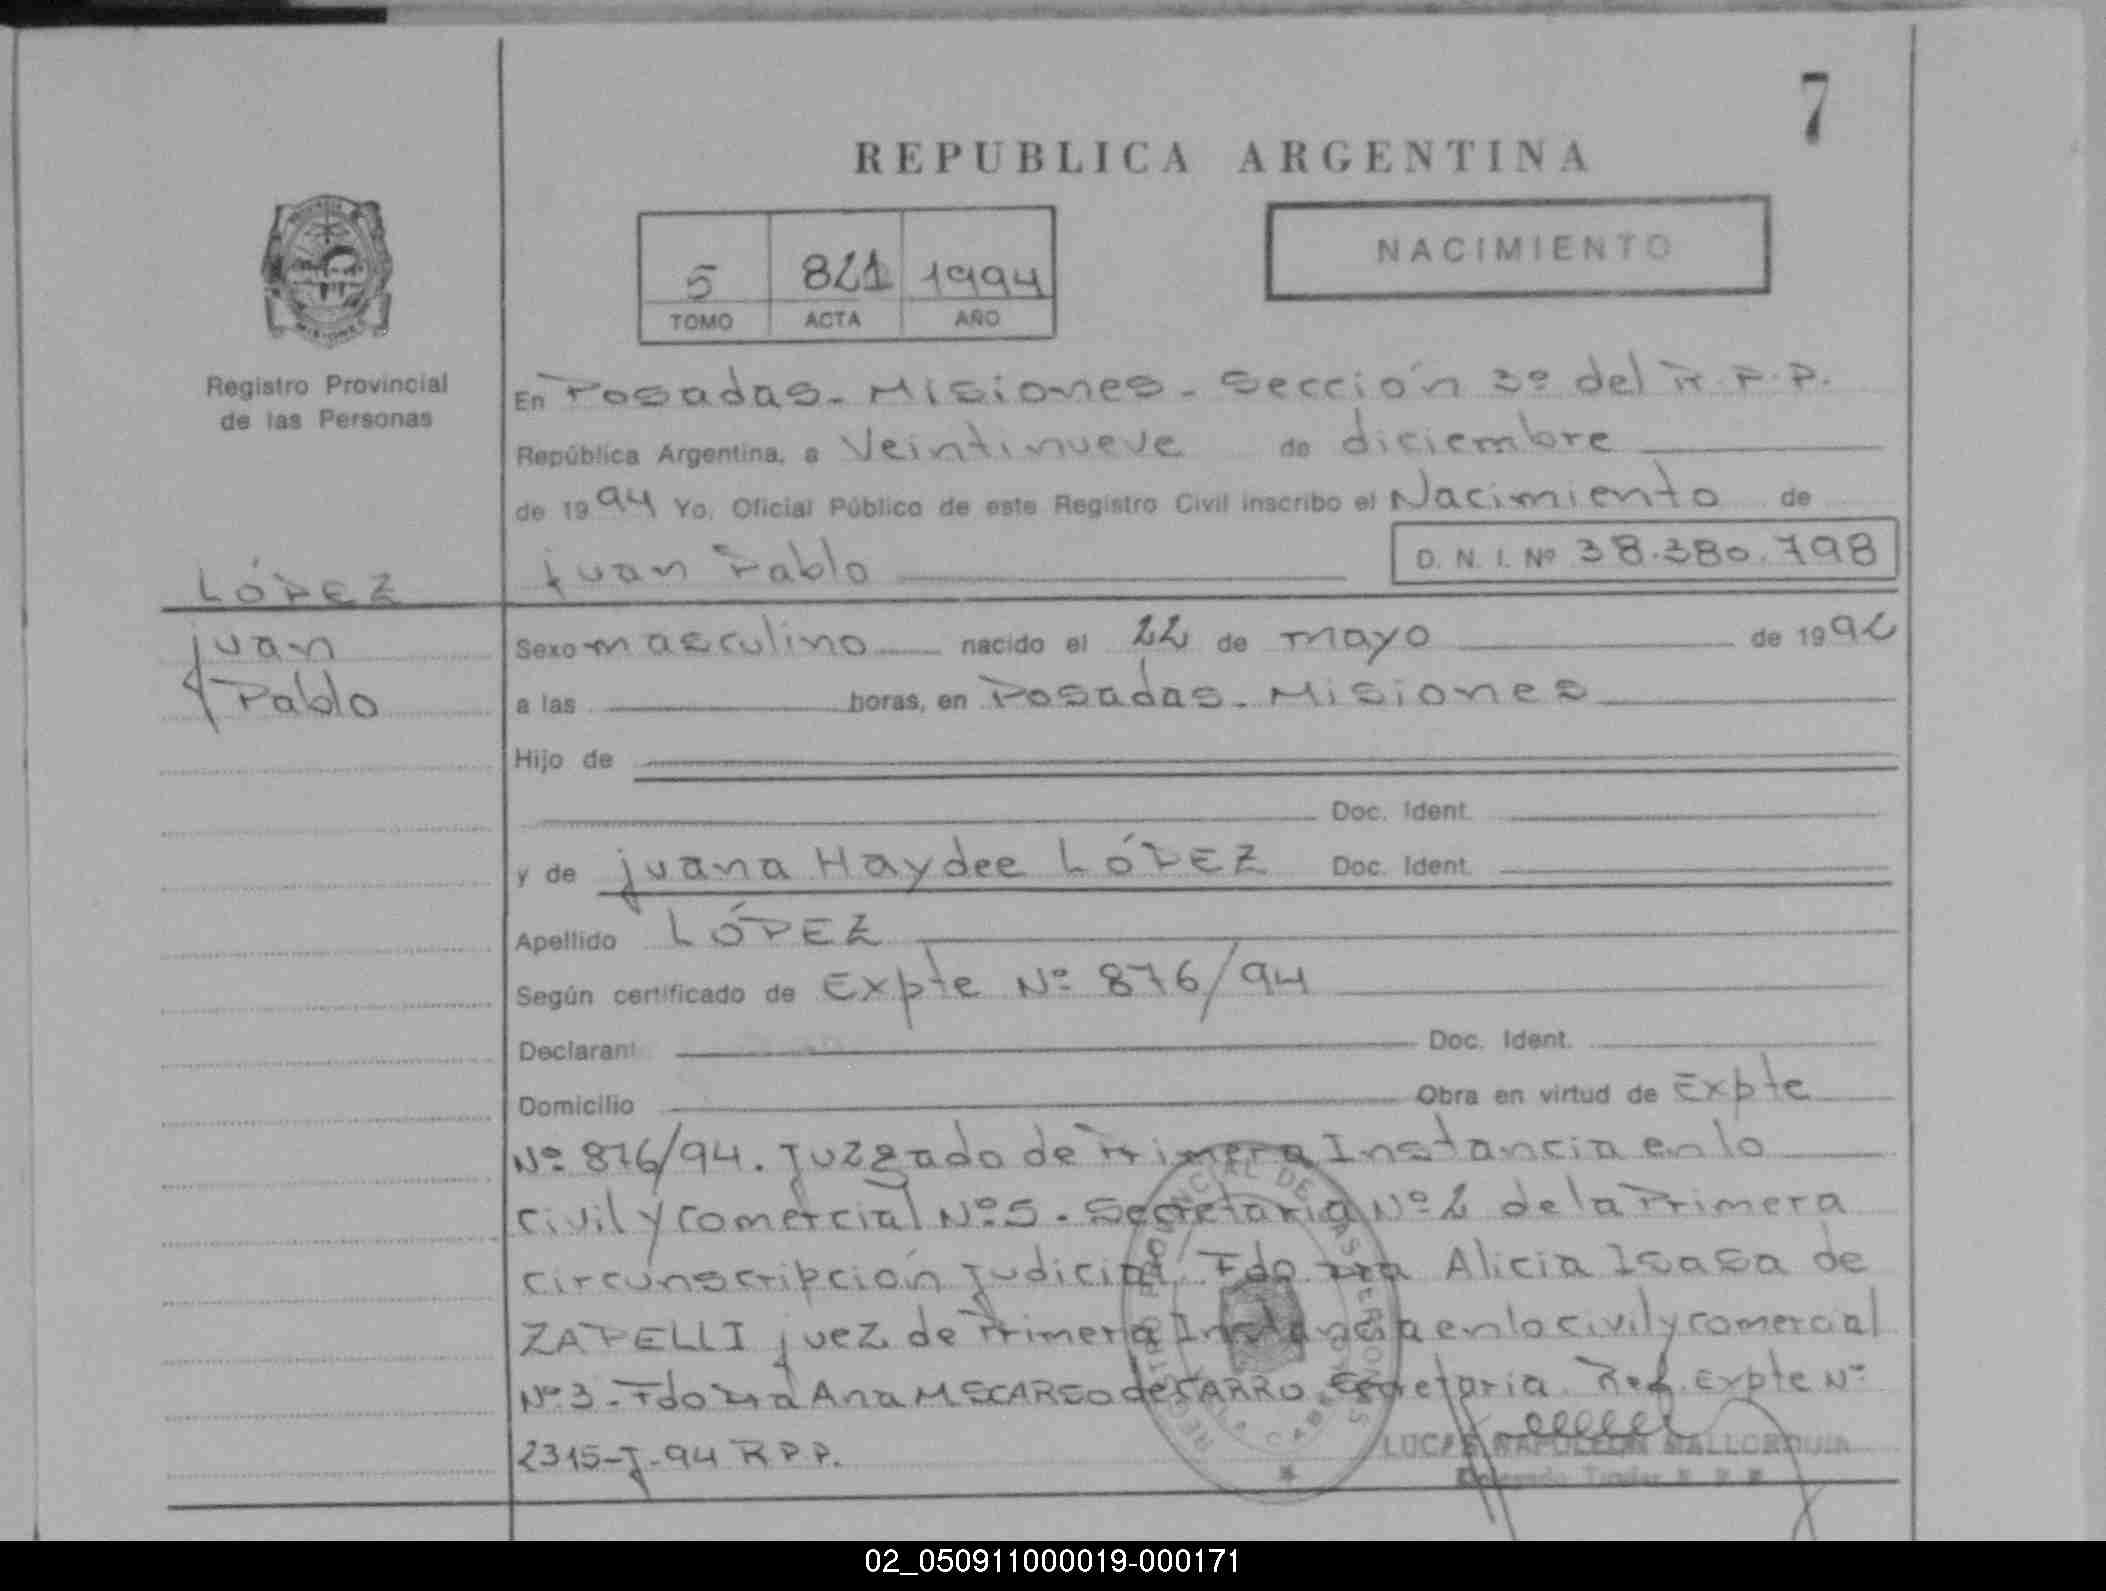 7
REPUBLICA ARGENTINA
5 821 1994
TOMO ACTA AÑO
NACIMIENTO
Registro Provincial
de las Personas
En Posadas - Misiones - Sección 3º del R.P.P.
República Argentina, a Veintinueve de diciembre
de 1994 Yo, Oficial Público de este Registro Civil inscribo el Nacimiento de
LÓPEZ
juan Pablo
D. N. I. Nº 38.380.798
juan
Pablo
Sexo masculino nacido el 22 de mayo de 1992
a las horas, en Posadas - Misiones
Hijo de
Doc. Ident.
y de juana Haydee LÓPEZ Doc. Ident.
Apellido LÓPEZ
Según certificado de Expte Nº 876/94
Declarant Doc. Ident.
Domicilio Obra en virtud de Expte
Nº 876/94. Juzgado de Primera Instancia en lo
civil y comercial Nº 5. Secretaria Nº 2 de la Primera
circunscripción judicial. Fdo Dra Alicia Isasa de
ZAPELLI juez de Primera Instancia en lo civil y comercial
Nº 3 - Fdo Dra Ana M de FARRO Secretaria Ref. Expte Nº
2315-J-94 R.P.P.
REGISTRO PROVINCIAL DE LAS PERSONAS
LUCAS NAPOLEON MALLORQUIN
02_050911000019-000171